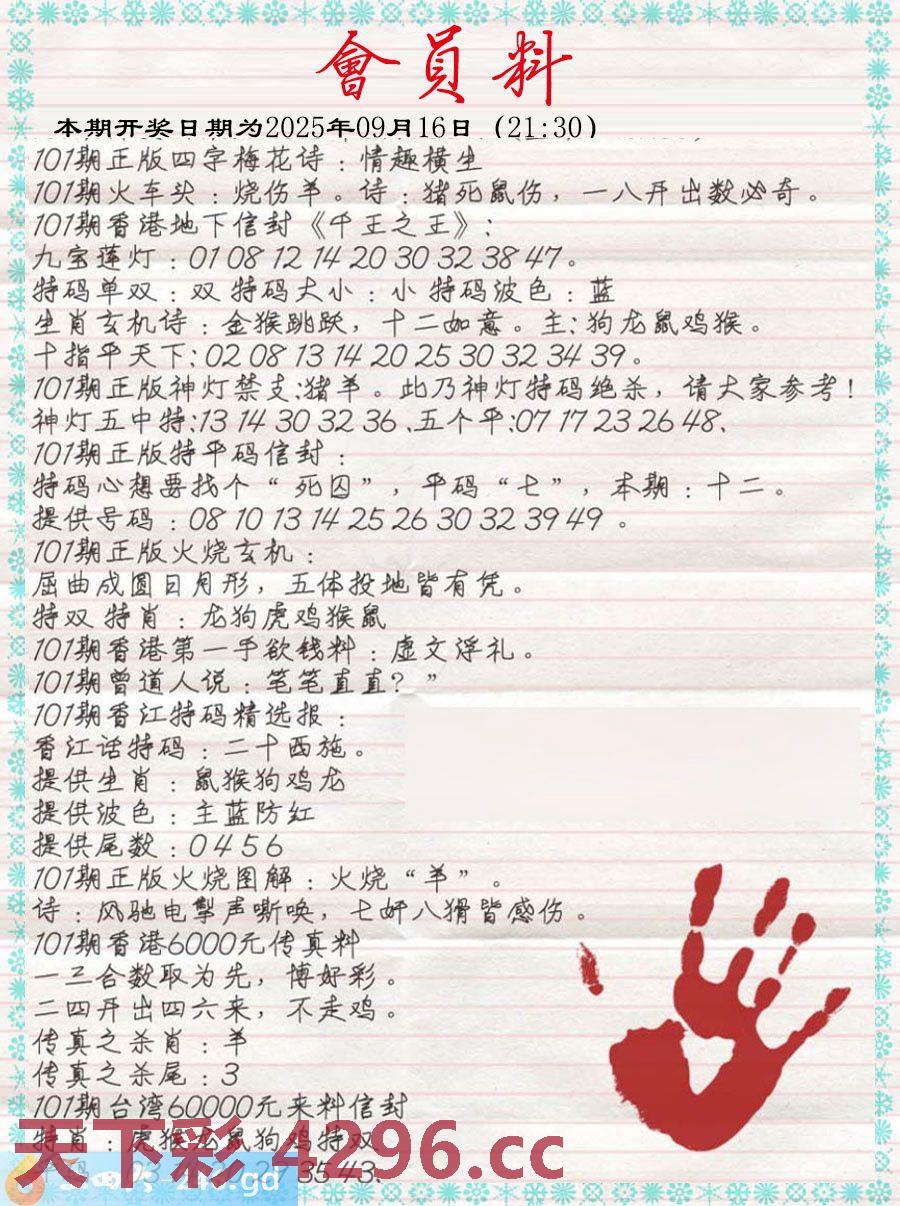 會員料
本期开奖日期为2025年09月16日（21:30）
101期正版四字梅花诗：情趣横生
101期火车头：烧伤羊。诗：猪死鼠伤，一八开出数必奇。
101期香港地下信封《千王之王》:
九宝莲灯：01 08 12 14 20 30 32 38 47。
特码单双：双 特码大小：小 特码波色：蓝
生肖玄机诗：金猴跳跃，十二如意。主:狗龙鼠鸡猴。
十指平天下:02 08 13 14 20 25 30 32 34 39。
101期正版神灯禁支:猪羊。此乃神灯特码绝杀，请大家参考！
神灯五中特:13 14 30 32 36、五个平:07 17 23 26 48、
101期正版特平码信封：
特码心想要找个“死囚”，平码“七”，本期：十二。
提供号码：08 10 13 14 25 26 30 32 39 49 。
101期正版火烧玄机：
屈曲成圆日月形，五体投地皆有凭。
特双 特肖：龙狗虎鸡猴鼠
101期香港第一手欲钱料：虚文浮礼。
101期曾道人说：笔笔直直？”
101期香江特码精选报：
香江话特码：二十西施。
提供生肖：鼠猴狗鸡龙
提供波色：主蓝防红
提供尾数：0 4 5 6
101期正版火烧图解：火烧“羊”。
诗：风驰电掣声嘶唤，七奸八猾皆感伤。
101期香港6000元传真料
一三合数取为先，博好彩。
二四开出四六来，不走鸡。
传真之杀肖：羊
传真之杀尾：3
101期台湾60000元来料信封
特肖：虎猴龙鼠狗鸡特双
天下彩 4296.cc
35 43、
.gd